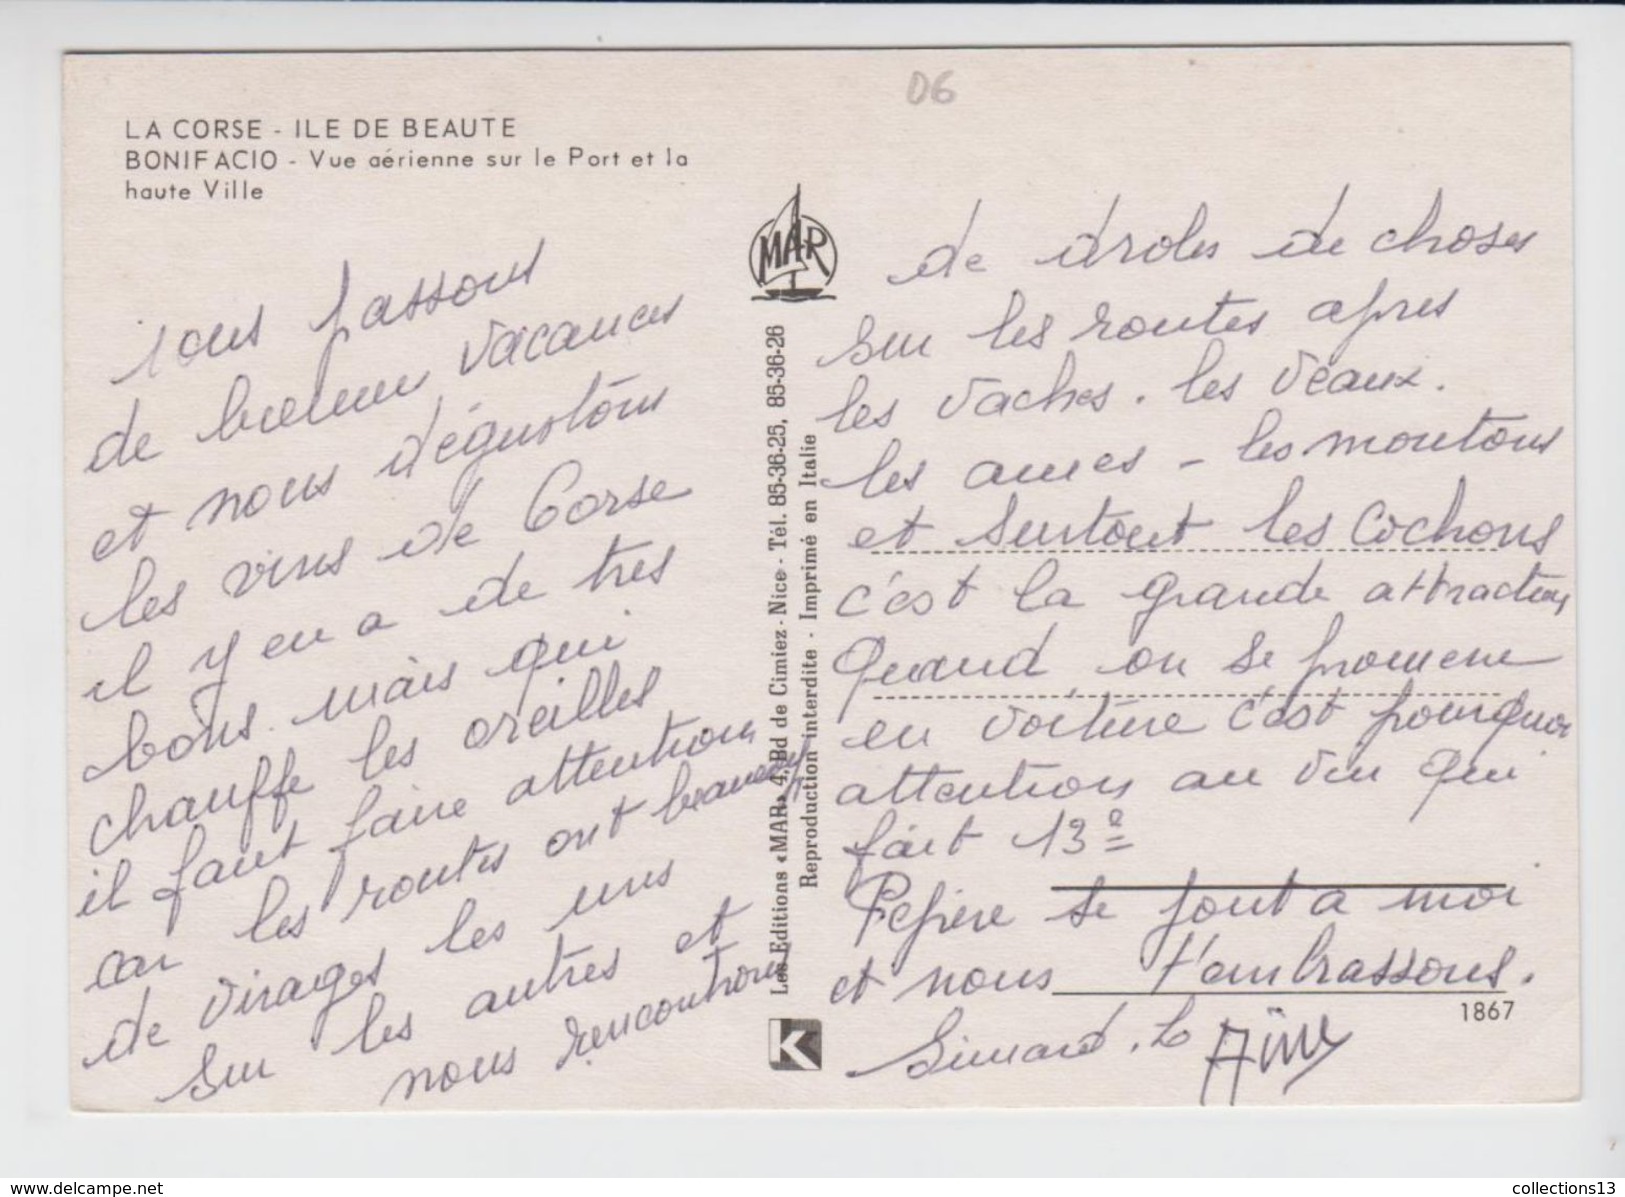 06
LA CORSE - ILE DE BEAUTE
BONIFACIO - Vue aérienne sur le Port et la
haute Ville
nous passons
de bonnes vacances
et nous dégustons
les vins de Corse
il y en a de tres
bons mais qui
chauffe les oreilles
il faut faire attention
car les routes ont beaucoup
de virages les uns
sur les autres et
nous rencontrons
MAR
Les Editions «MAR» 4, Bd de Cimiez - Nice - Tél. 85-36-25, 85-36-26
Reproduction interdite - Imprimé en Italie
K
de droles de choses
sur les routes apres
les vaches. les veaux.
les anes - les moutons
et surtout les cochons
c'est la grande attraction
Quand on se promene
en voiture c'est pourquoi
attention au vin qui
fait 13°
Pepère se jout a moi
et nous t'embrassons.
1867
www.delcampe.net
collections13